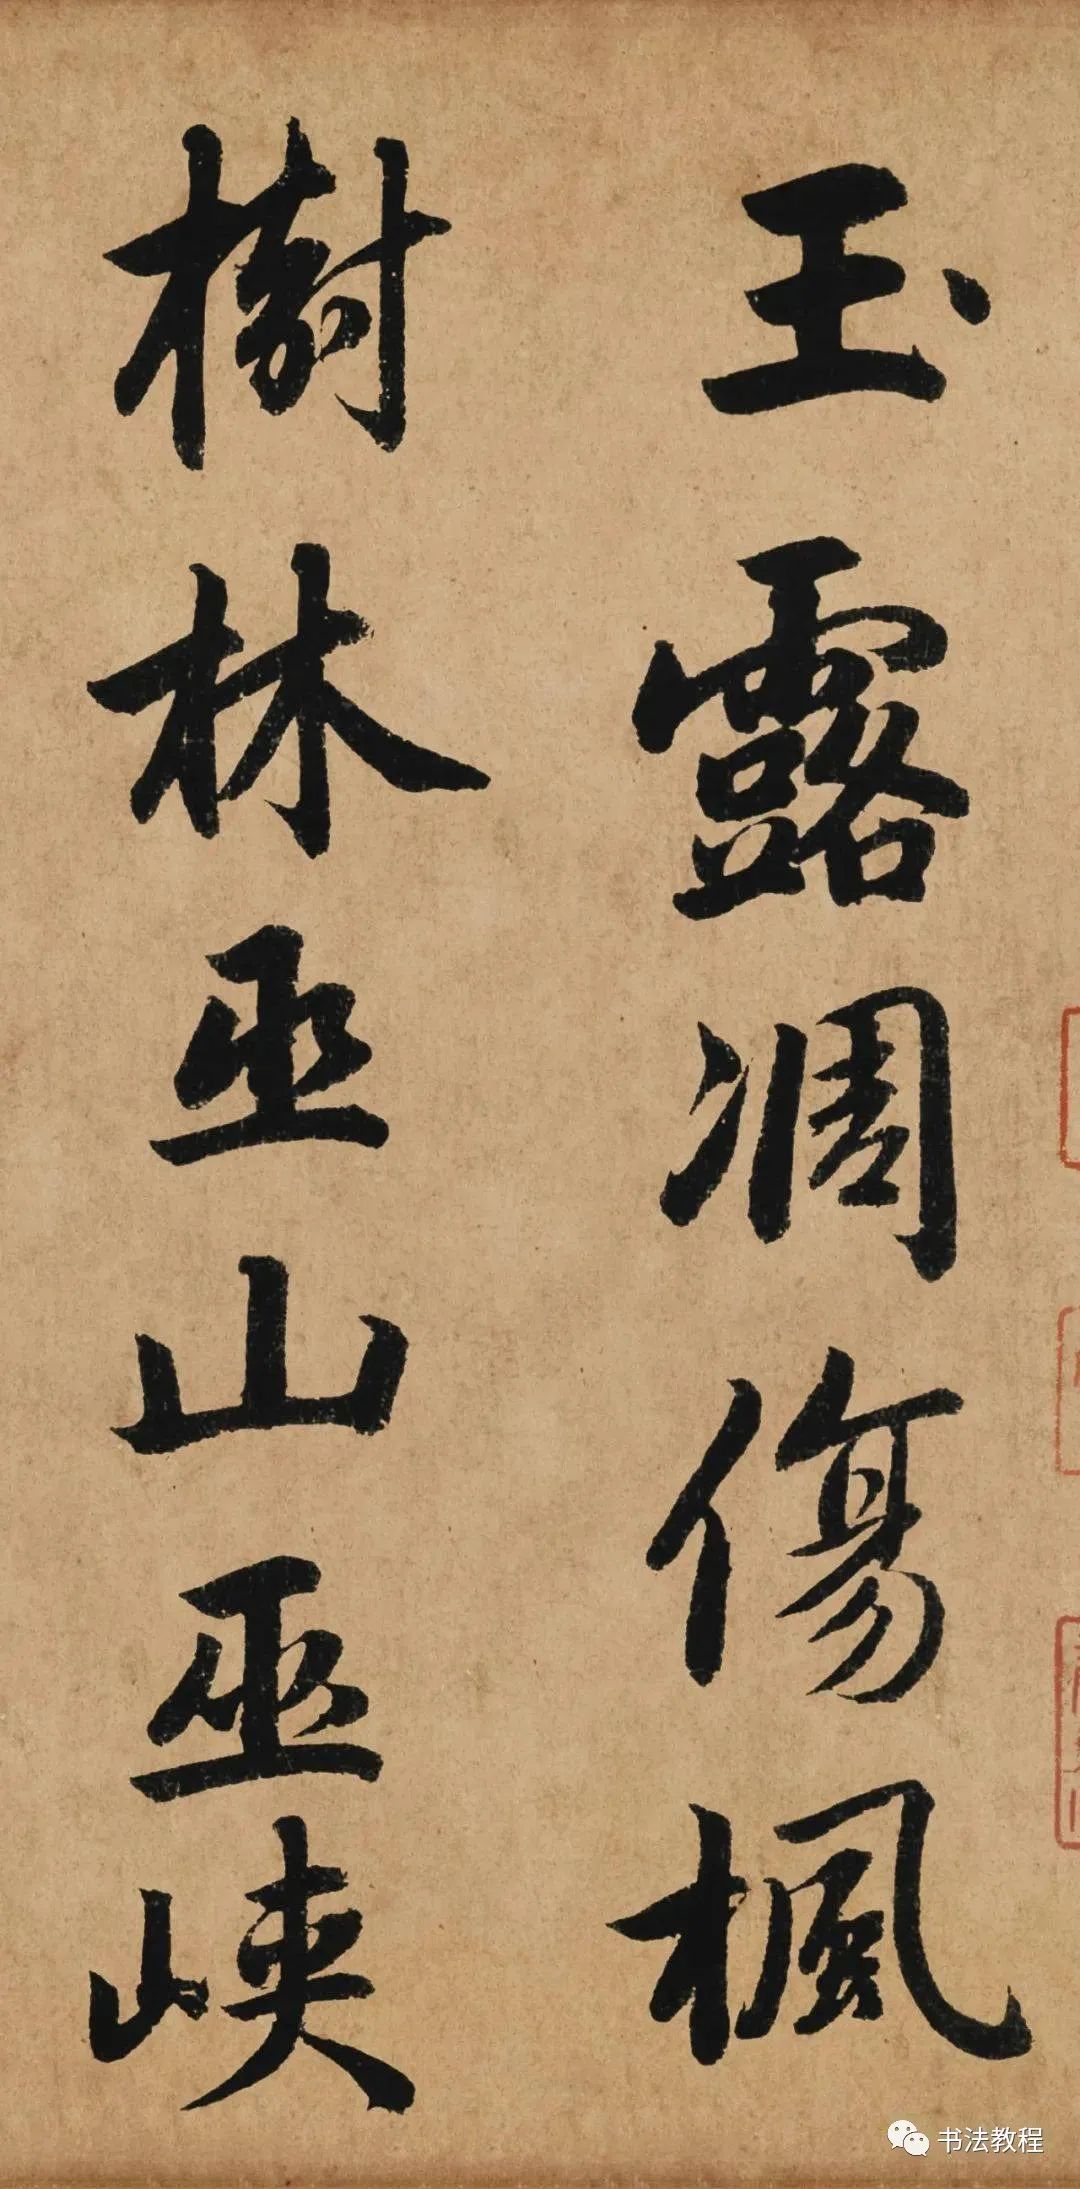 玉露凋傷楓
樹林巫山巫峽
书法教程